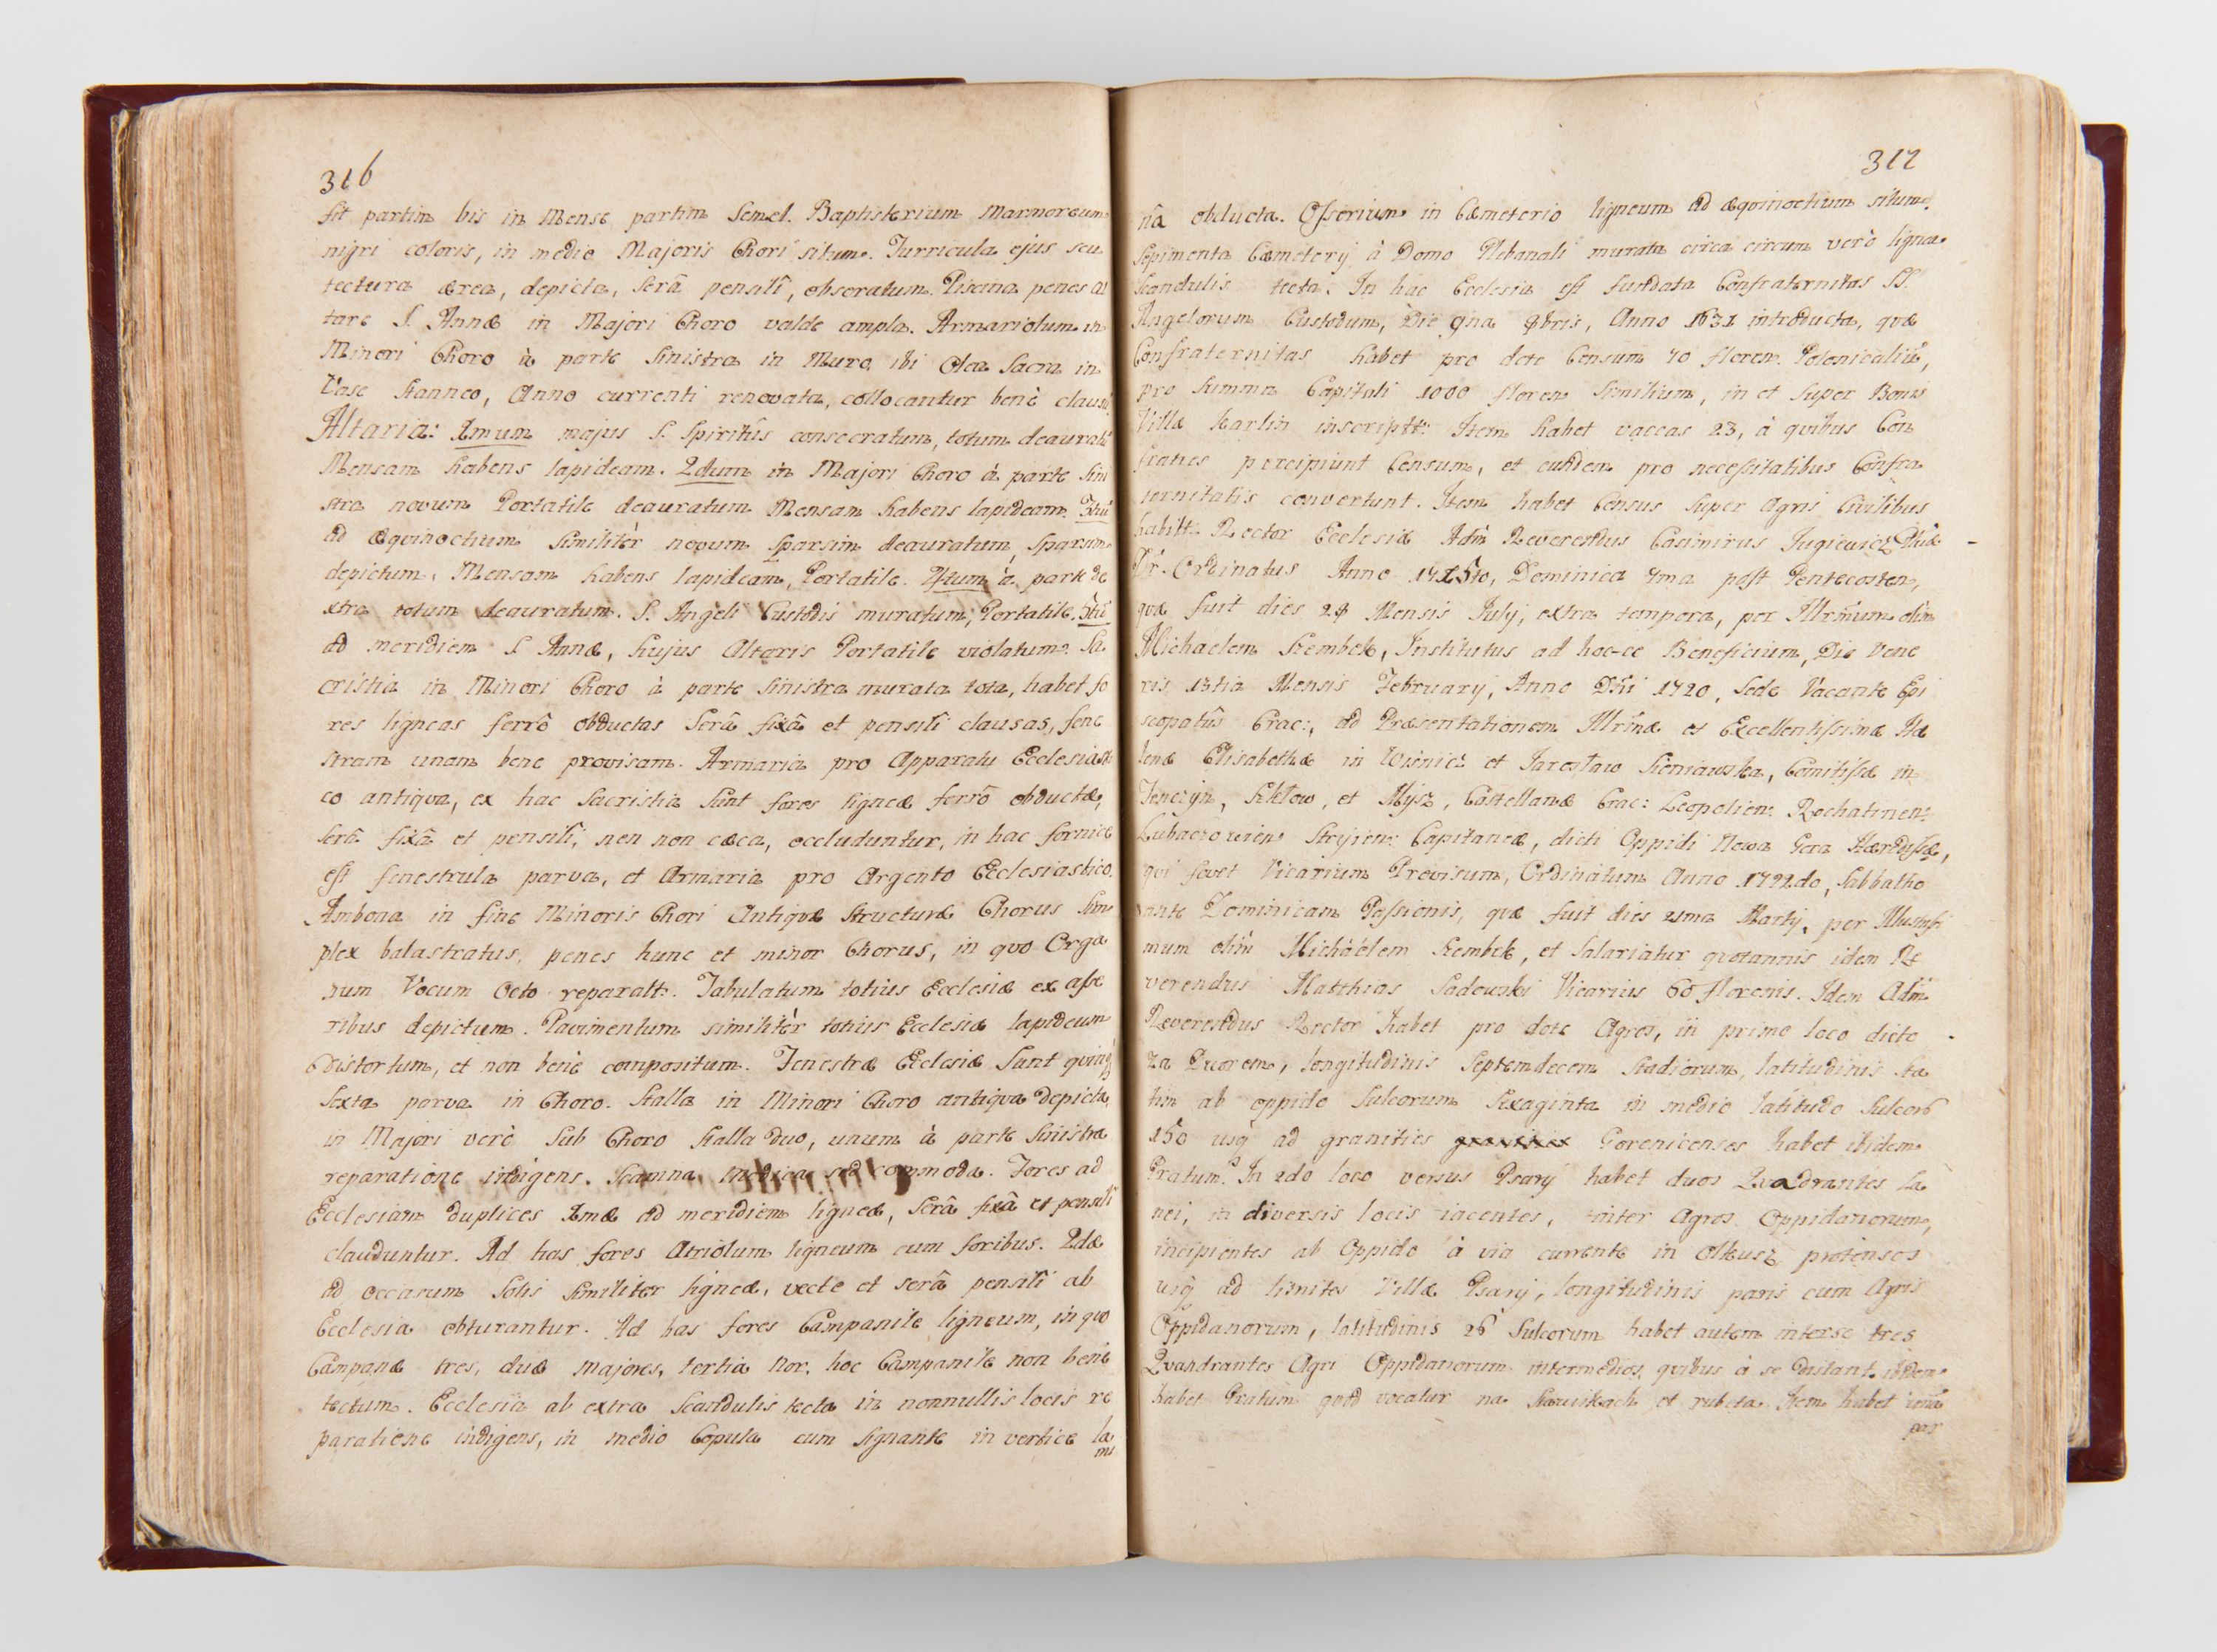 316
fit partim bis in Mense partim Semel. Baptisterium Marmoreum
nigri coloris, in medio Majoris Chori situm. Turricula ejus seu
tectura ærea, depicta, Serâ pensili, obseratum. Piscina penes al
tare S. Annæ in Majori Choro valde ampla. Armariolum in
Minori Choro à parte Sinistra in Muro, ibi Olea Sacra in
Vase Stanneo, Anno currenti renovata, collocantur benè clausa.
Altaria: 1mum majus S. Spiritûs consecratum, totum deauratũ
Mensam habens lapideam. 2dum in Majori Choro à parte Sini
stra novum Portatile deauratum Mensam habens lapideam. 3tiũ
ad Æquinoctium Similitèr novum Sparsim deauratum, Sparsim
depictum. Mensam habens lapideam, Portatile. 4tum à parte de
xtra totum deauratum. S. Angeli Custodis muratum, Portatile. 5tũ
ad meridiem S. Annæ, hujus Altaris Portatile violatum. Sa
cristia in Minori Choro à parte Sinistra murata tota, habet fo
res ligneas ferrô obductas Serâ fixâ et pensili clausas, fene
stram unam bene provisam. Armaria pro Apparatu Ecclesiasti
co antiqva, ex hac Sacristia Sunt fores ligneæ ferrô obductæ,
Serâ fixâ et pensili, nen non cæca, occluduntur, in hac fornice
est fenestrula parva, et Armaria pro Argento Ecclesiastico.
Ambona in fine Minoris Chori Antiqvæ Structuræ Chorus Sim
plex balastratus, penes hunc et minor Chorus, in quo Orga
num Vocum Octo reparatt. Tabulatum totius Ecclesiæ ex asse
ribus depictum. Pavimentum similitèr totius Ecclesiæ lapideum
distortum, et non benè compositum. Fenestræ Ecclesiæ Sunt qvinq
Sexta parva in Choro. Stalla in Minori Choro antiqva depicta,
in Majori verò Sub Choro Stalla duo, unum à parte Sinistra
reparatione indigens. Scamna modica sed commoda. Fores ad
Ecclesiam duplices 1mæ ad meridiem ligneæ, Serâ fixâ et pensili
clauduntur. Ad has fores Atriolum ligneum cum foribus. 2dæ
ad occasum Solis Similiter ligneæ, vecte et serâ pensili ab
Ecclesia obturantur. Ad has fores Campanile ligneum, in quo
Campanæ tres, duæ majores, tertia nor. hoc Campanile non benè
tectum. Ecclesia ab extra Scandulis tecta in nonnullis locis re
paratione indigens, in medio Copula cum Signante in vertice la
mi
317
nâ obducta. Osserium in Cæmeterio ligneum ad æqvinoctium situm.
Sepimenta Cæmeterij à Domo Plebanali murata circa circum verò lignea
Scandulis tecta. In hac Ecclesia est fundata Confraternitas SS.
Angelorum Custodum, Die 9na 9bris, Anno 1631 introducta, quæ
Confraternitas habet pro dote Censum 70 floren. Polonicaliũ,
pro Summa Capitali 1000 floren Similium, in et Super Bonis
Villæ Karlin inscriptt. Item habet vaccas 23, à qvibus Con
fratres percipiunt Censum, et eundem pro necessitatibus Confra
ternitatis convertunt. Item habet Census Super Agris Civilibus
habitt. Rector Ecclesiæ Adm Reverendus Casimirus Jugiewicz
Ordinatus Anno 1715to, Dominica 7ma post Pentecosten,
quæ fuit dies 28 Mensis Julij, extra tempora, per Illrmum olim
Michaelem Szembek, Institutus ad hoc-ce Beneficium, Die Vene
ris 13tia Mensis February, Anno Dni 1720, Sede Vacante Epi
scopatûs Crac:, ad Præsentationem Illrmæ et Excellentissimæ He
lenæ Elisabethæ in Wisnicz et Jarosław Sieniawska, Comitissæ in
Tenczyn, Szkłow, et Mysz, Castellanæ Crac: Leopolien: Rochatinen:
Lubaczowien Stryien: Capitaneæ, dicti Oppidi Nowa Gora Hæredissæ,
qvi fovet Vicarium Provisum, Ordinatum Anno 1722do, Sabbatho
ante Dominicam Passionis, quæ fuit dies 21ma Martij, per Illustrissi
mum olim Michaelem Szembek, et Salariatur quotannis idem Re
verendus Matthias Sadowski Vicarius 60 florenis. Idem Adm
Reverendus Rector habet pro dote Agros, in primo loco dicto
za Dworem, longitudinis Septemdecem Stadiorum, latitudinis Sta
tim ab oppido Sulcorum Sexaginta in medio latitudo Sulcorũ
150 usq ad granities Gorenicenses habet ibidem
Pratum. In 2do loco versus Psary habet duos Qvadrantes La
nei, in diversis locis iacentes, inter Agros Oppidanorum,
incipientes ab Oppido à via currente in Olkusz protensos
usq ad limites Villæ Psary, longitudinis paris cum Agris
Oppidanorum, latitudinis 26 Sulcorum habet autem interse tres
Qvandrantes Agri Oppidanorum intermedios, qvibus à se distant. ibidem
habet Pratum quod vocatur na Stawiskach et rubeta. Item habet unã
par